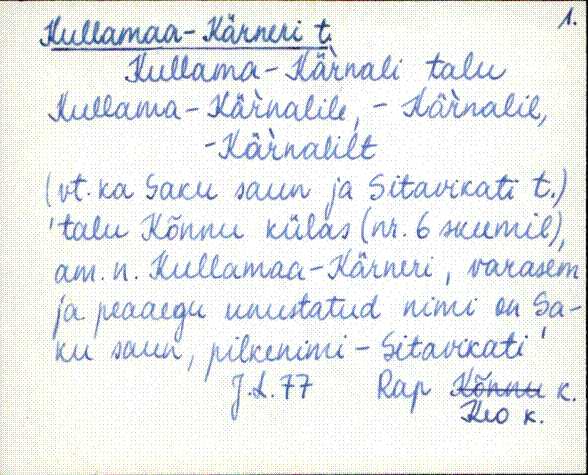 1.
Kullamaa-Kärneri t.
Kullama-Kär̀nali talu
Kullama-Kär̀nalile, -Kär̀nalil,
-Kär̀nalilt
(vt. ka Saku saun ja Sitavikati t.)
'talu Kõnnu külas (nr. 6 skeemil),
am. n. Kullamaa-Kärneri, varasem
ja peaaegu unustatud nimi on Sa-
ku saun, pilkenimi - Sitavikati'
J.S. 77 Rap Kõnnu k.
Keo k.